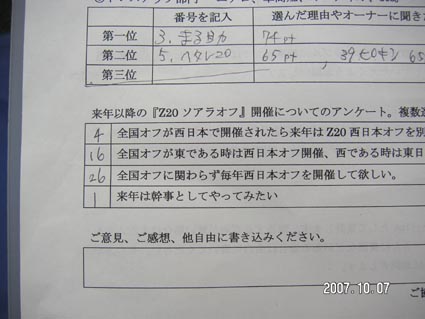 番号を記入 選んだ理由やオーナーに聞きた
第一位 3. まる日力 74pt
第二位 5. ヘタレ20 65pt 65
第三位
来年以降の『Z20 ソアラオフ』開催についてのアンケート。複数
4 全国オフが西日本で開催されたら来年は Z20 西日本オフを別
16 全国オフが東である時は西日本オフ開催、西である時は東日
26 全国オフに関わらず毎年西日本オフを開催して欲しい。
1 来年は幹事としてやってみたい
ご意見、ご感想、他自由に書き込みください。
2007.10.07